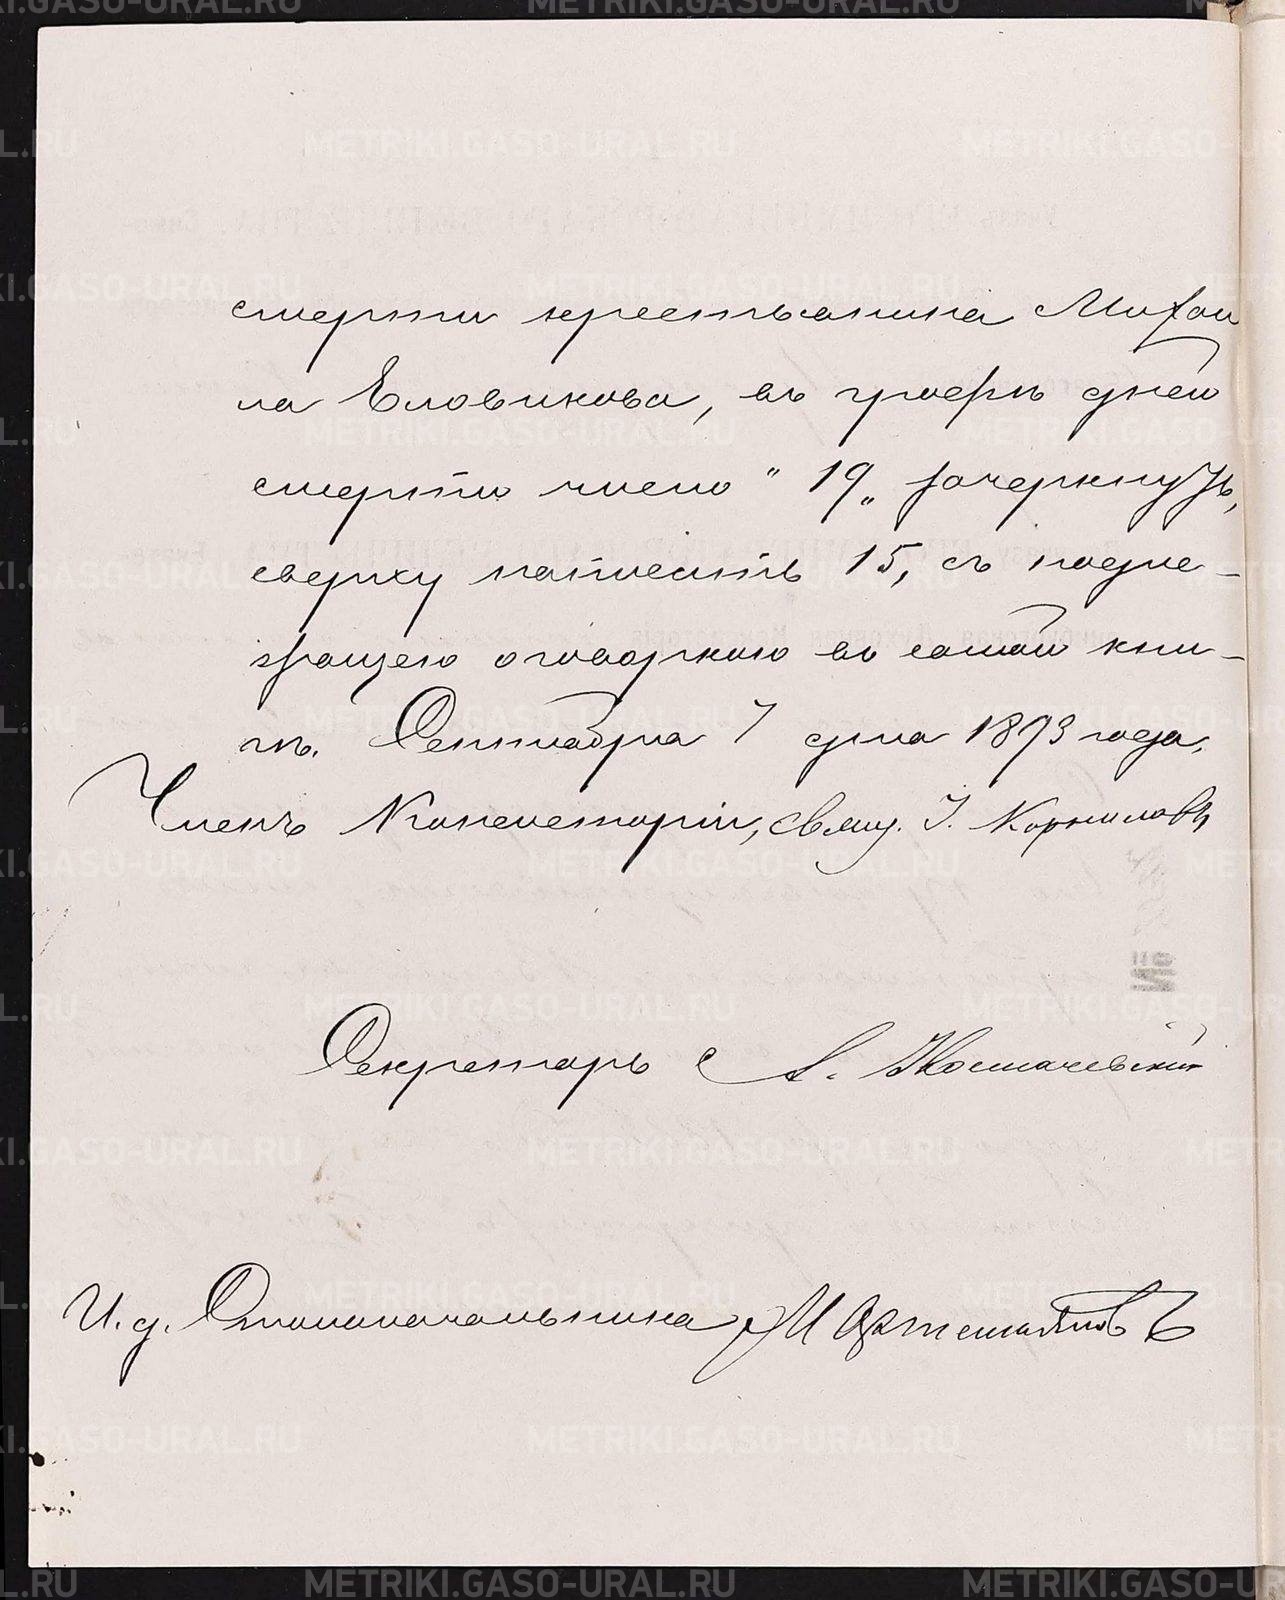 смерти крестьянина Михаи
ла Еловикова, въ графѣ дней
смерти число "19" зачеркнуть,
сверху написать 15, съ надле-
жащею оговоркою въ самой кни-
гѣ. Сентября 7 дня 1893 года.
Членъ Консисторіи, Свящ. І. Корниловъ
Секретарь А.
И. д. Столоначальника
METRIKI.GASO-URAL.RU